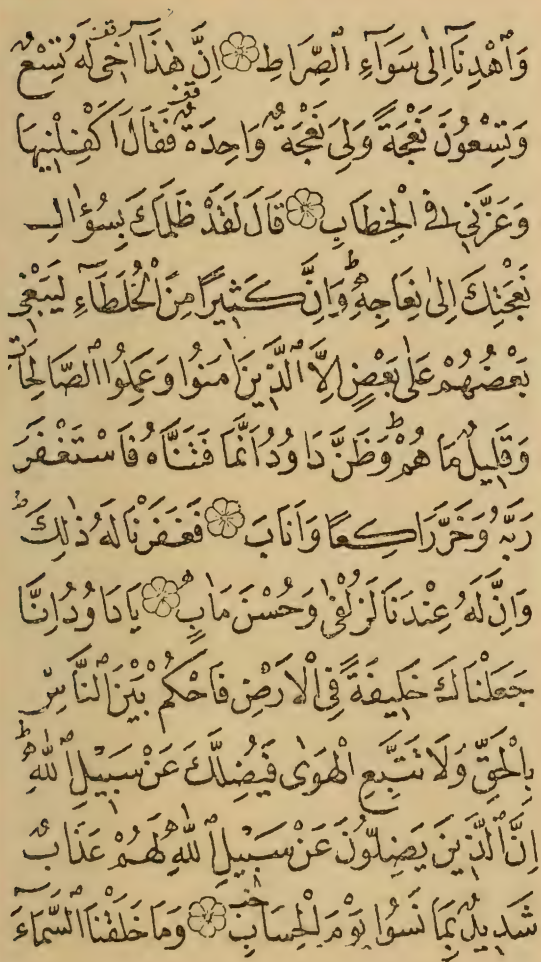 وَاهْدِنَآ اِلٰى سَوَآءِ الصِّرَاطِ ۝ اِنَّ هٰذَآ اَخٖى لَهُ تِسْعٌ
وَتِسْعُونَ نَعْجَةً وَلِىَ نَعْجَةٌ وَاحِدَةٌ فَقَالَ اَكْفِلْنٖيهَا
وَعَزَّنٖى فِى الْخِطَابِ ۝ قَالَ لَقَدْ ظَلَمَكَ بِسُؤَالِ
نَعْجَتِكَ اِلٰى نِعَاجِهٖ وَاِنَّ كَثٖيرًا مِنَ الْخُلَطَآءِ لَيَبْغٖى
بَعْضُهُمْ عَلٰى بَعْضٍ اِلَّا الَّذٖينَ اٰمَنُوا وَعَمِلُوا الصَّالِحَاتِ
وَقَلٖيلٌ مَا هُمْ وَظَنَّ دَاوُدُ اَنَّمَا فَتَنَّاهُ فَاسْتَغْفَرَ
رَبَّهُ وَخَرَّ رَاكِعًا وَاَنَابَ ۝ فَغَفَرْنَا لَهُ ذٰلِكَ
وَاِنَّ لَهُ عِنْدَنَا لَزُلْفٰى وَحُسْنَ مَاٰبٍ ۝ يَادَاوُدُ اِنَّا
جَعَلْنَاكَ خَلٖيفَةً فِى الْاَرْضِ فَاحْكُمْ بَيْنَ النَّاسِ
بِالْحَقِّ وَلَا تَتَّبِعِ الْهَوٰى فَيُضِلَّكَ عَنْ سَبٖيلِ اللّٰهِ
اِنَّ الَّذٖينَ يَضِلُّونَ عَنْ سَبٖيلِ اللّٰهِ لَهُمْ عَذَابٌ
شَدٖيدٌ بِمَا نَسُوا يَوْمَ الْحِسَابِ ۝ وَمَا خَلَقْنَا السَّمَآءَ